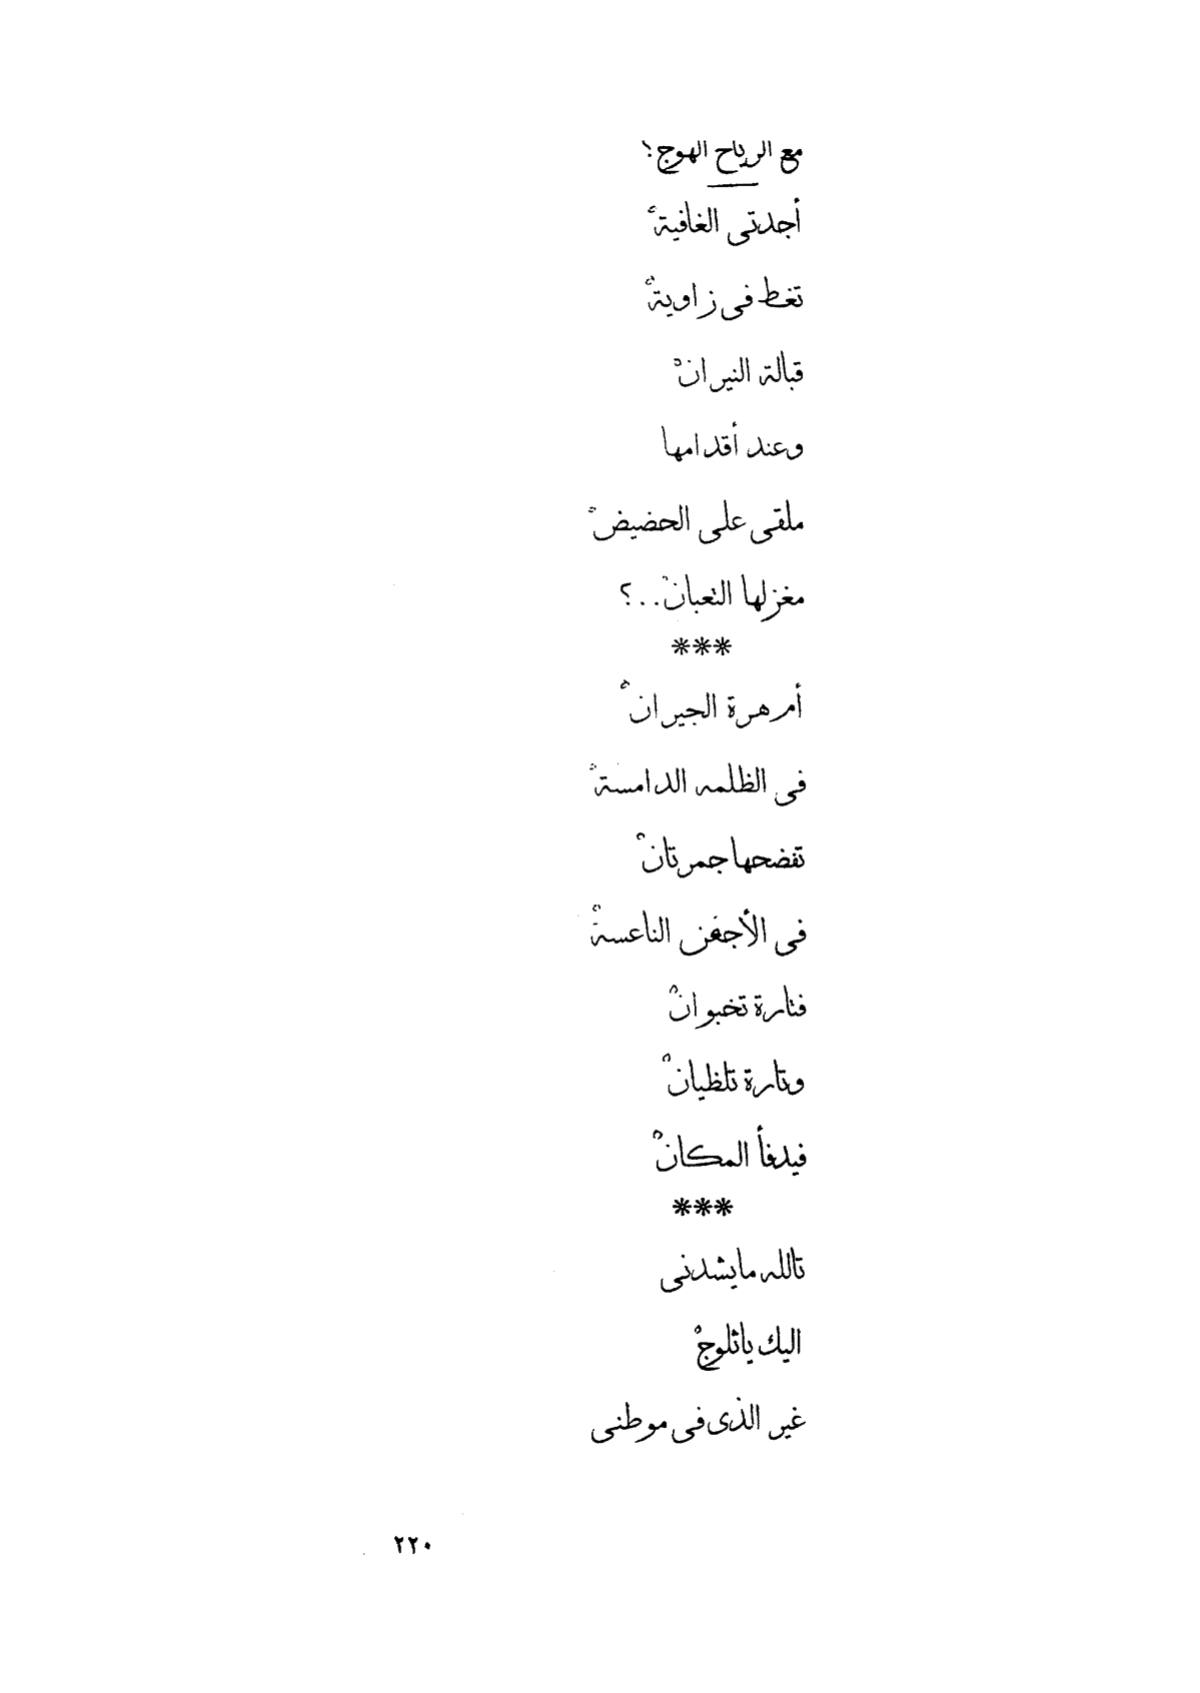 مع الرياح الهوج؟
أجدتى الغافيةْ
تغط فى زاويةْ
قبالة النيرانْ
وعند أقدامها
ملقى على الحضيضْ
مغزلها التعبانْ..؟
***
أم هرة الجيرانْ
فى الظلمه الدامسةْ
تفضحها جمرتانْ
فى الأجفن الناعسةْ
فتارة تخبوانْ
وتارة تلظيانْ
فيدفأ المكانْ
***
تالله مايشدنى
اليك ياثلوجْ
غير الذى فى موطنى
٢٢٠